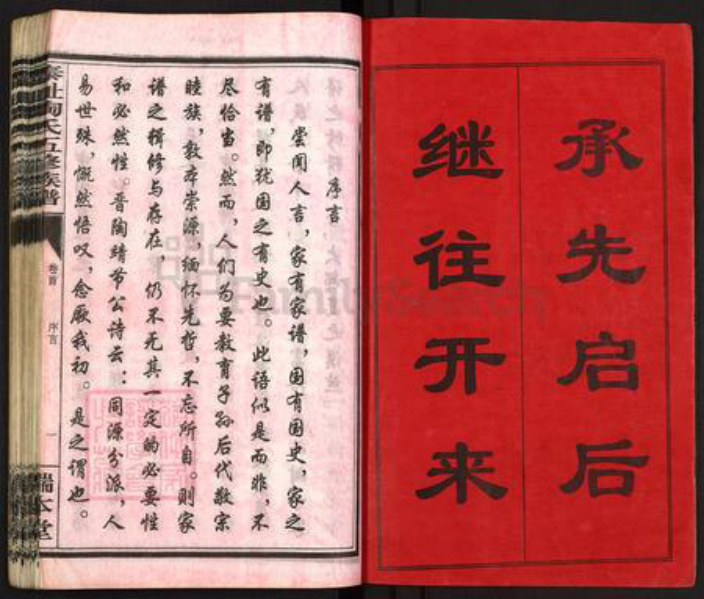 承先启后
继往开来
序言
尝闻人言,家有家谱,国有国史,家之
有谱,即犹国之有史也。此语似是而非,不
尽恰当。然而,人们为要教育子孙后代敬宗
睦族,敦本崇源,缅怀先哲,不忘所自。则家
谱之辑修与存在,仍不无其一定的必要性
和必然性。晋陶靖节公诗云:同源分派,人
易世殊,慨然悟叹,念厥我初。是之谓也。
陶氏五修族谱
卷首 序言 一
本堂
FamilySearch